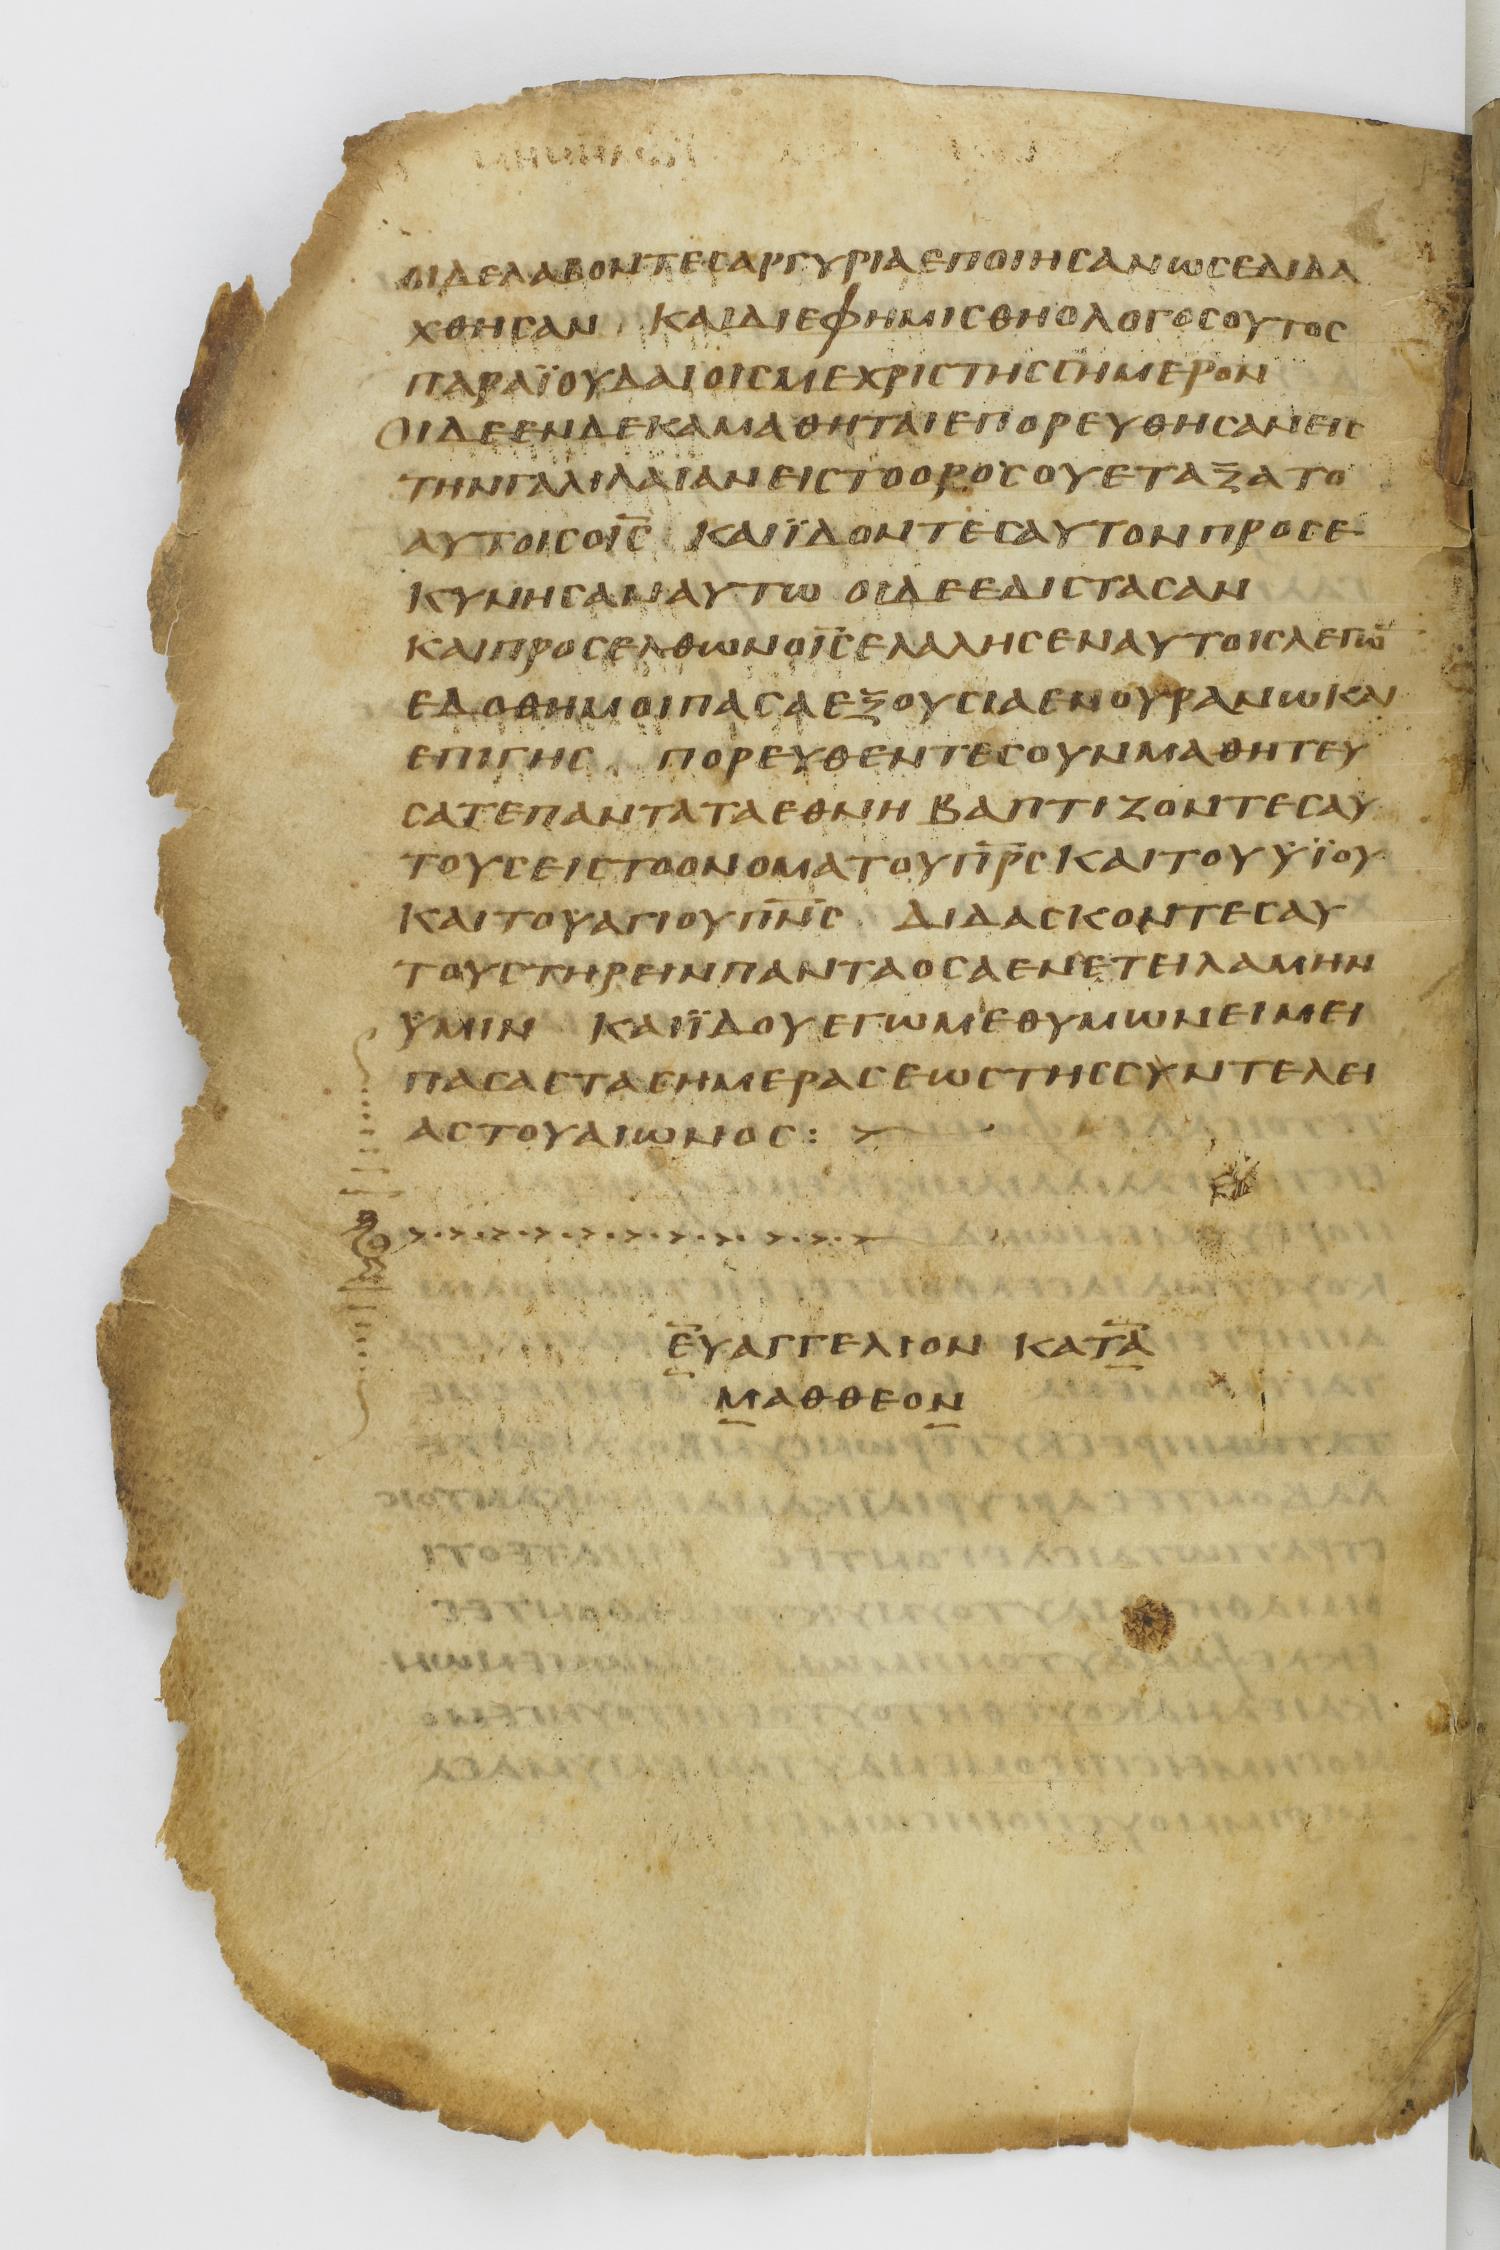 ΟΙΔΕΛΑΒΟΝΤΕСΑΡΓΥΡΙΑΕΠΟΙΗСΑΝωСΕΔΙΔΑ
ΧΘΗСΑΝ ΚΑΙΔΙΕΦΗΜΙСΘΗΟΛΟΓΟСΟΥΤΟС
ΠΑΡΑΪΟΥΔΑΙΟΙСΜΕΧΡΙСΤΗССΗΜΕΡΟΝ
ΟΙΔΕΕΝΔΕΚΑΜΑΘΗΤΑΙΕΠΟΡΕΥΘΗСΑΝΕΙС
ΤΗΝΓΑΛΙΛΑΙΑΝΕΙСΤΟΟΡΟСΟΥΕΤΑΞΑΤΟ
ΑΥΤΟΙСΟΙ̅С̅ ΚΑΙΪΔΟΝΤΕСΑΥΤΟΝΠΡΟСΕ
ΚΥΝΗСΑΝΑΥΤω ΟΙΔΕΕΔΙСΤΑСΑΝ
ΚΑΙΠΡΟСΕΛΘωΝΟΙ̅С̅ΕΛΑΛΗСΕΝΑΥΤΟΙСΛΕΓω̅
ΕΔΟΘΗΜΟΙΠΑСΑΕΞΟΥСΙΑΕΝΟΥΡΑΝωΚΑΙ
ΕΠΙΓΗС ΠΟΡΕΥΘΕΝΤΕСΟΥΝΜΑΘΗΤΕΥ
СΑΤΕΠΑΝΤΑΤΑΕΘΝΗ ΒΑΠΤΙΖΟΝΤΕСΑΥ
ΤΟΥСΕΙСΤΟΟΝΟΜΑΤΟΥΠ̅Ρ̅СΚΑΙΤΟΥΫΪΟΥ
ΚΑΙΤΟΥΑΓΙΟΥΠ̅Ν̅С̅ ΔΙΔΑСΚΟΝΤΕСΑΥ
ΤΟΥСΤΗΡΕΙΝΠΑΝΤΑΟСΑΕΝΕΤΕΙΛΑΜΗΝ
ΫΜΙΝ ΚΑΙΪΔΟΥΕΓωΜΕΘΥΜωΝΕΙΜΕΙ
ΠΑСΑСΤΑСΗΜΕΡΑСΕωСΤΗССΥΝΤΕΛΕΙ
ΑСΤΟΥΑΙωΝΟС:
ΕΥΑΓΓΕΛΙΟΝ ΚΑΤΑ
ΜΑΘΘΕΟΝ